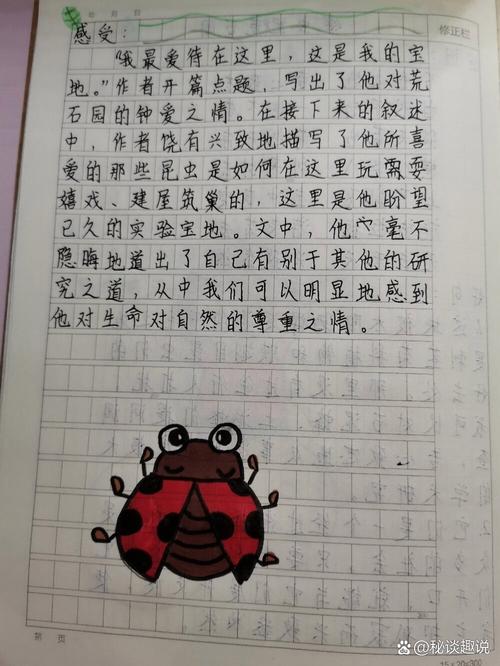 感受：
修正栏
“我最爱待在这里，这是我的宝
地。”作者开篇点题，写出了他对荒
石园的钟爱之情。在接下来的叙述
中，作者饶有兴致地描写了他所喜
爱的那些昆虫是如何在这里玩耍
嬉戏、建屋筑巢的，这里是他盼望
已久的实验宝地。文中，他毫不
隐晦地道出了自己有别于其他的研
究之道，从中我们可以明显地感到
他对生命对自然的尊重之情。
第 页
15×20=300
@秘谈趣说